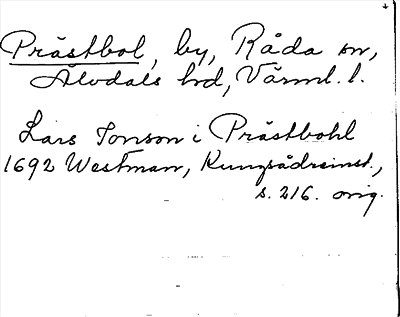 Prästbol, by, Råda sn,
Älvdals hd, Värml. l.
Lars Jonson i Prästbohl
1692 Westman, Kungsådreinst.,
s. 216. orig.